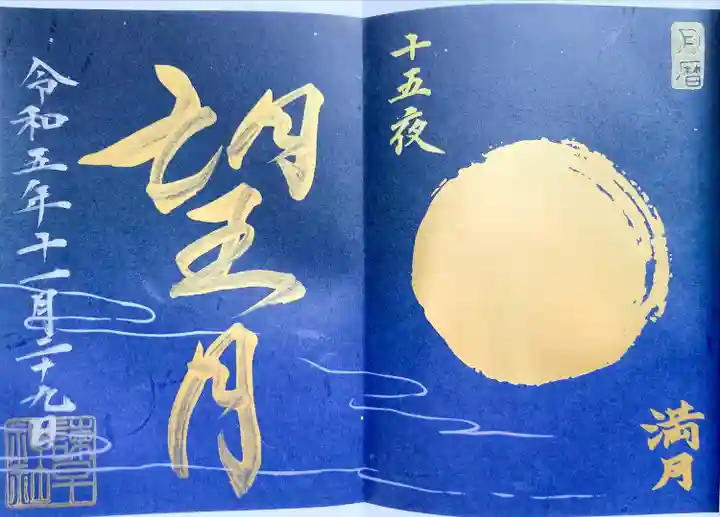 月暦
十五夜
満月
望月
令和五年十一月二十九日